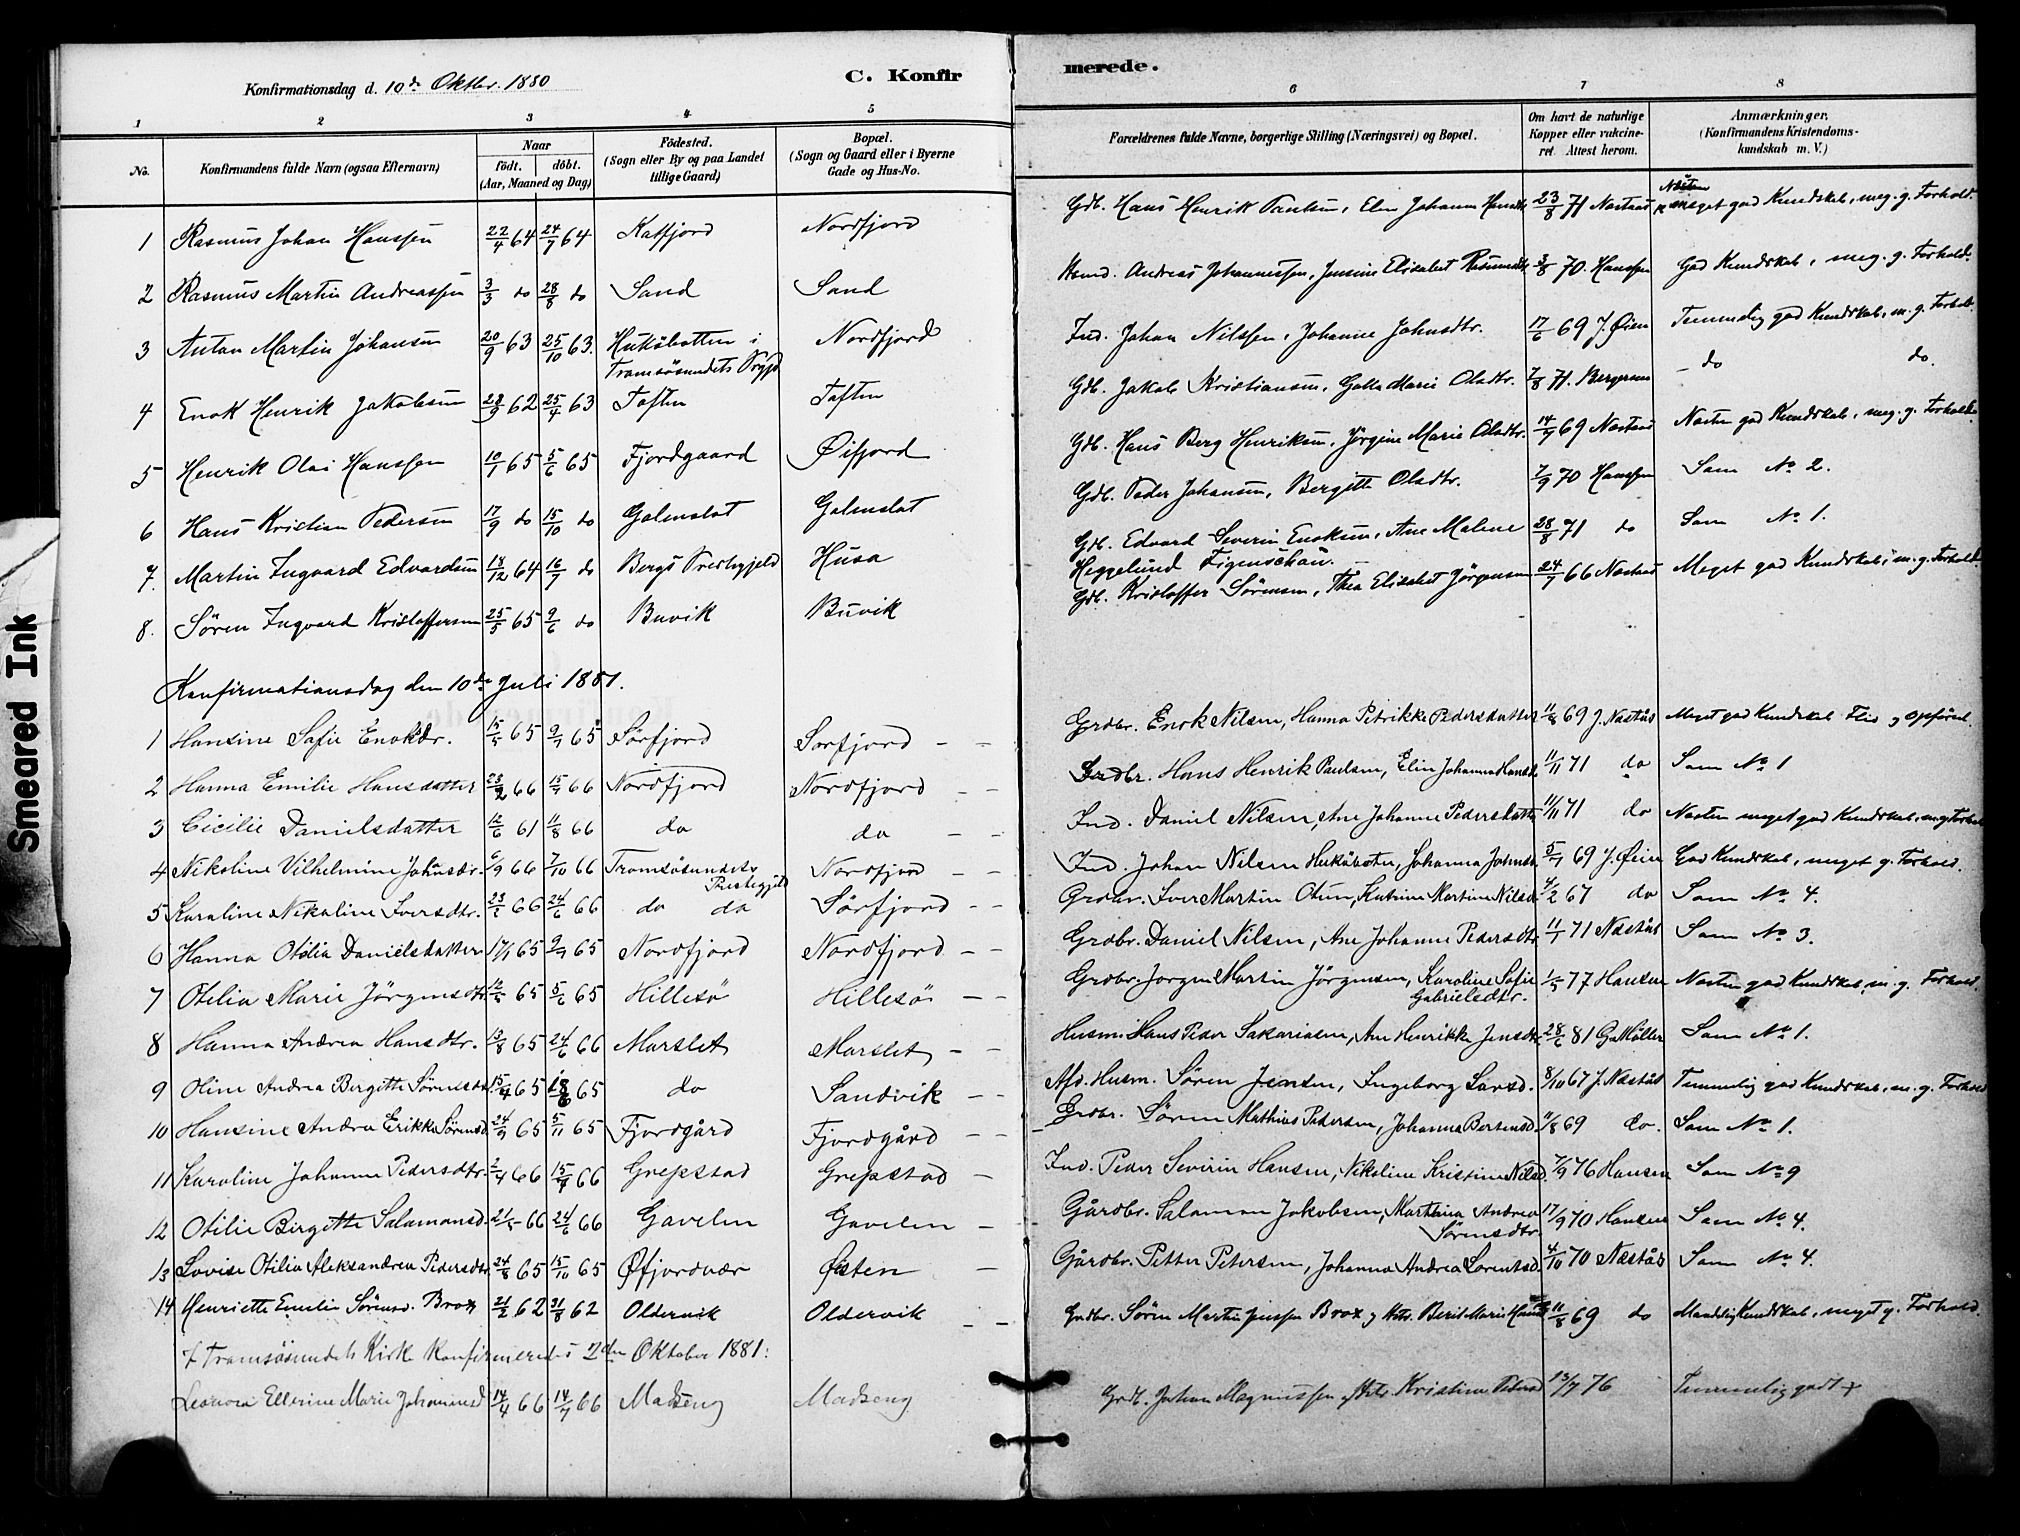 Konfirmationsdag d. 10de Oktbr. 1880
C. Konfirmerede.
1 2 3 4 5 6 7 8
No.
Konfirmandens fulde Navn (ogsaa Efternavn)
Naar
født. døbt.
(Aar, Maaned og Dag)
Fødested.
(Sogn eller By og paa Landet
tillige Gaard)
Bopæl.
(Sogn og Gaard eller i Byerne
Gade og Hus-No.
Forældrenes fulde Navne, borgerlige Stilling (Næringsvei) og Bopæl.
Om havt de naturlige
Kopper eller vakcine-
ret. Attest herom.
Anmærkninger.
(Konfirmandens Kristendoms-
kundskab m. V.)
1 Rasmus Johan Hanssen 22/4 64 24/7 64 Katfjord Nordfjord Gdb. Hans Henrik Paulsen, Elen Johanna Hansdtr. 23/8 71 Næstaas Næsten meget god Kundskab, meg. g. Forhold.
2 Rasmus Martin Andreassen 3/3 do 28/8 do Sand Sand Andreas Johannessen, Jensine Elisabet 3/8 70 Hanssen God Kundskab, meg. g. Forhold.
3 Anton Martin Johansen 20/9 63 25/10 63. Hukøbotten i
Tromsøsundets Prgjd Nordfjord Ind. Johan Nilssen, Johanne Johnsdtr. 17/6 69 J. Øien Temmelig god Kundskab, m. g. Forhold.
4 Enok Henrik Jakobsen 28/9 62 25/4 63 Toften Toften Gdb. Jakob Kristiansen, Marie Olsdtr. 7/8 71. Bergersen do do.
5 Henrik Olai Hanssen 10/1 65 5/6 65 Fjordgaard Øifjord Gdb. Hans Berg Henriksen, Jørgine Marie Olsdtr. 14/9 69 Næstaas Næsten god Kundskab, meg. g. Forhold.
6 Hans Kristian Pedersen 17/9 do 15/10 do Galmslat Galmslat Gdb. Peder Johansen, Bergitte Olsdtr. 7/9 70 Hanssen Som No 2.
7. Martin Ingvard Edvardsen 18/12 64 16/7 do Bergs Prestegjeld Husa Gdb. Edvard Severin Enoksen, Ane Malene
Heggelund Figenschau. 28/8 71 do Som No 1.
8. Søren Ingvard Kristoffersen 25/5 65 9/6 do Buvik Buvik Gdb. Kristoffer Sørensen, Thea Elisabet Jørgensen 24/7 66 Næstaas Meget god Kundskab, m. g. Forhold
Konfirmationsdag den 10de Juli 1881.
1 Hansine Sofie Enoksdr. 15/5 65 9/7 65 Sørfjord Sorfjord Grdbr. Enok Nilsen, Hanna Petrikke Pedersdatter 11/8 69 J. Næstås Meget god Kundskab Flid og Opførsel.
2 Hanna Emilie Hansdatter 23/2 66 15/7 66 Nordfjord Nordfjord Grdbr. Hans Henrik Paulsen, Elin Johanna Hansd. 11/11 71 do Som No 1
3 Cicilie Danielsdatter 12/6 61 11/8 66 do do Ind. Daniel Nilsen, Ane Johanne Pedersdatter 11/11 71 do Næsten meget god Kundskab, m g Forhold
4 Nikoline Vilhelmine Johansdr. 6/9 66 7/10 66 Tromsøsundets
Prestegjeld Nordfjord Ind. Johan Nilsen Hukøbotn, Johanna Johnsd. 5/7 69 J. Øien God Kundskab, meget g. Forhold.
5 Karoline Nikoline Iversdtr. 23/2 66 24/6 66 do do Sørfjord Grdbr. Iver Martin Olsen, Katrine Martine Nilsd. 4/2 67 do Som No 4.
6 Hanna Otilia Danielsdatter 17/1 65 9/7 65 Nordfjord Nordfjord Grdbr. Daniel Nilsen, Ane Johanne Pedersdtr. 11/7 71 Næstås Som No 3.
7 Otilia Marie Jörgensdtr. 12/5 65 5/6 65 Hillesø Hillesø Grdbr. Jorgen Martin Jörgensen, Karoline Sofie
Gabrielsdtr. 1/5 77 Hansen Næsten god Kundskab, m. g. Forhold.
8 Hanna Andrea Hansdtr. 13/8 65 24/6 66 Marslet Marslet Husm. Hans Peder Sakariasen, Ane Henrikke Jensdtr. 28/6 81 Møller Som No 1.
9 Oline Andrea Bergitte Sørensdtr. 15/4 65 18/6 65 do Sandvik Afd. Husm. Søren Jensen, Ingeborg Larsd. 8/10 67 J. Næstås Temmelig god Kundskab, m. g. Forhold
10 Hansine Andrea Erikke Sørensd. 24/9 65 5/11 65 Fjordgård Fjordgård Grdbr. Søren Mathias Pedersen, Johanna Berteusd. 11/8 69 do. Som No 1.
11 Karoline Johanne Pedersdtr. 2/4 66 15/7 66 Grepstad Grepstad Ind. Peder Sevirin Hansen, Nikoline Kristine Nilsd. 7/9 76 Hansen Som No 9
12 Otilie Birgitte Salamonsd. 21/5 66 24/6 66 Gavelen Gavelen Gårdbr. Salamon Jakobsen, Marthina Andrea
Sørensdtr. 17/9 70 Hansen Som No 4.
13 Lovise Otilia Aleksandrea Pedersdtr. 24/8 65 15/10 65 Øfjordvær Østen Gårdbr. Petter Petersen, Johanna Andrea Lorentsd. 4/10 70 Næstås Som No 4.
14 Henriette Emelie Sørensd. Brox 21/2 62 31/8 62 Oldervik Oldervik Grdbr. Søren Martin Jenssen Brox og Berit Marie 11/8 69 do Kundskab, meget g. Forhold.
I Tromsøsundets Kirke konfirmeredes 2den Oktober 1881:
Leonora Ellerine Marie Johannesd 14/4 66 14/7 66 Madseng Madseng Grdb. Johan Magnussen Kristine Pedersd 13/7 76 Temmelig godt
Smeared Ink